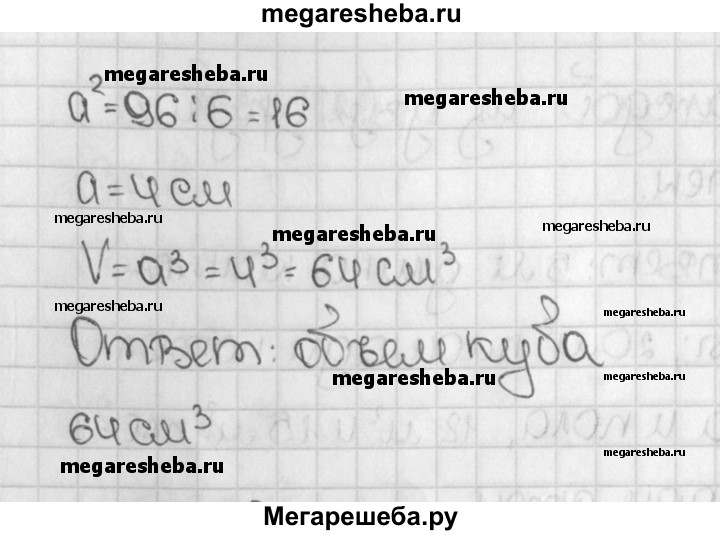 megaresheba.ru
megaresheba.ru
a²=96:6=16
megaresheba.ru
a=4см
megaresheba.ru
megaresheba.ru
megaresheba.ru
V=a³=4³=64см³
megaresheba.ru
megaresheba.ru
Ответ: объем куба
megaresheba.ru
megaresheba.ru
64см³
megaresheba.ru
megaresheba.ru
Мегарешеба.ру